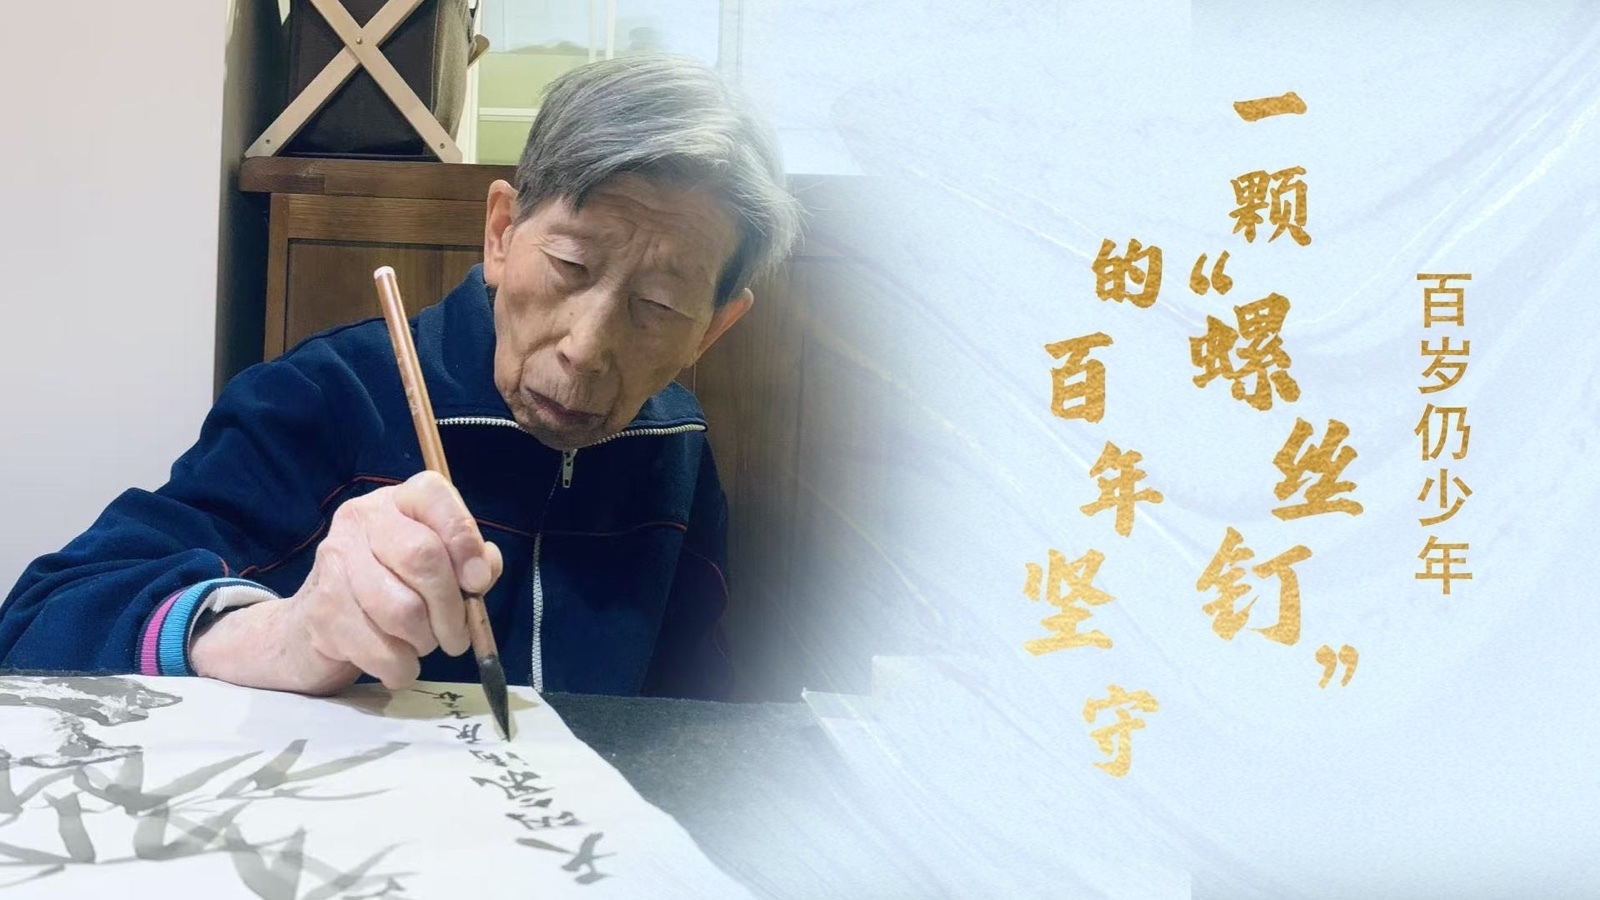 百岁仍少年
一颗“螺丝钉”
的百年坚守